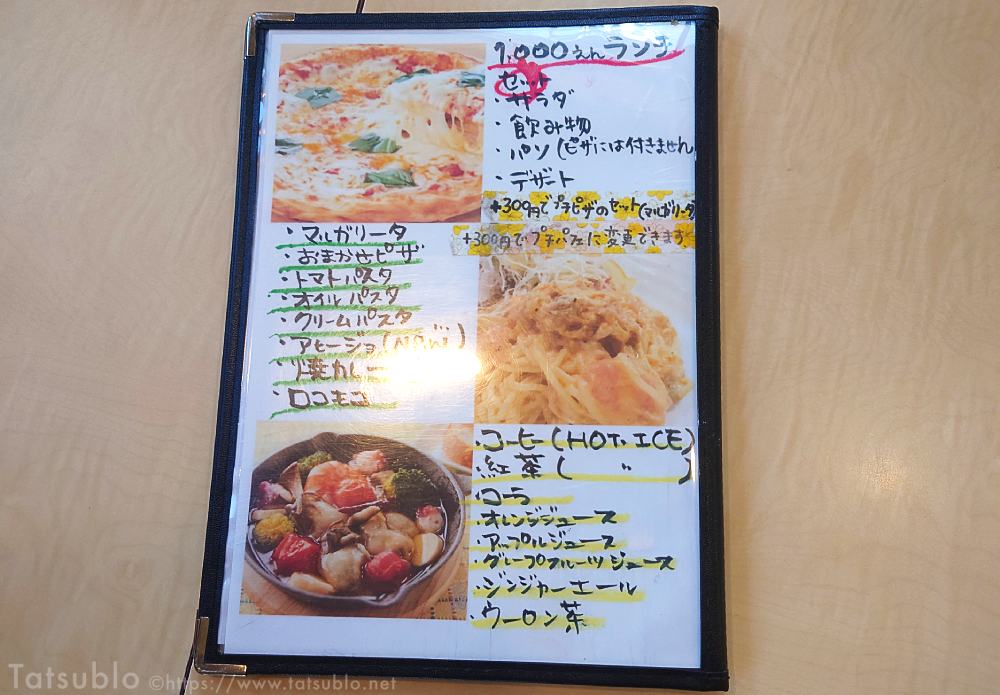 1,000えんランチ
セット
・サラダ
・飲み物
・パン(ピザには付きません
・デザート
+300円でプチピザのセット(マルガリータ)
+300円でプチパフェに変更できます
・マルガリータ
・おまかせピザ
・トマトパスタ
・オイルパスタ
・クリームパスタ
・アヒージョ(NEW!)
・カレー
・ロコモコ
・コーヒー(HOT・ICE)
・紅茶( 〃 )
・コーラ
・オレンジジュース
・アップルジュース
・グレープフルーツジュース
・ジンジャーエール
・ウーロン茶
Tatsublo ©https://www.tatsublo.net